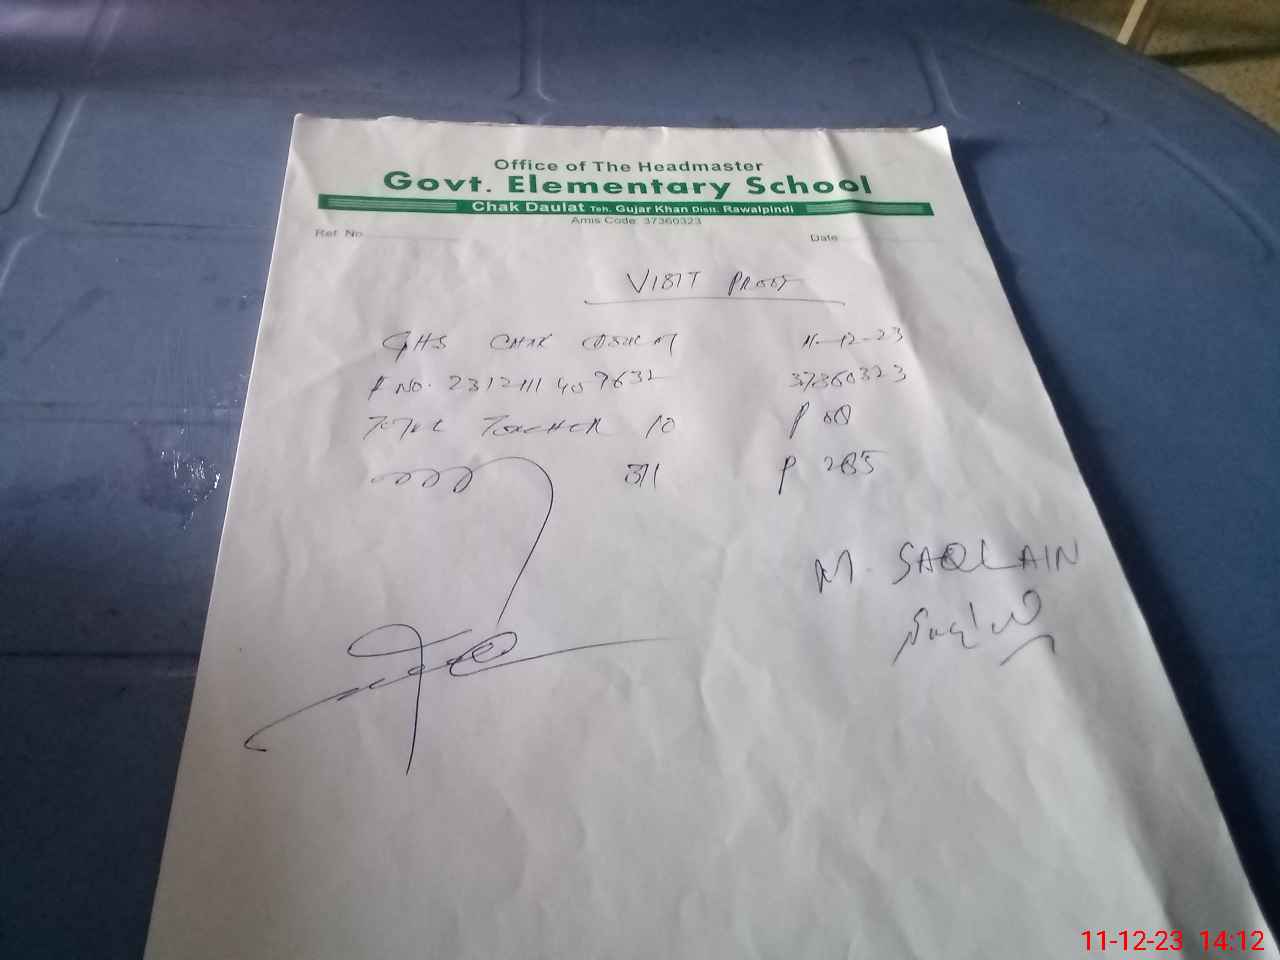 Office of The Headmaster
Govt. Elementary School
Chak Daulat Teh. Gujar Khan Distt. Rawalpindi
Amis Code: 37360323
Ref. No.
Date
VISIT PROOF
GHS CHAK 11-12-23
37360323
TOTAL TEACHER 10 P
311 P 285
M. SAQLAIN
11-12-23 14:12